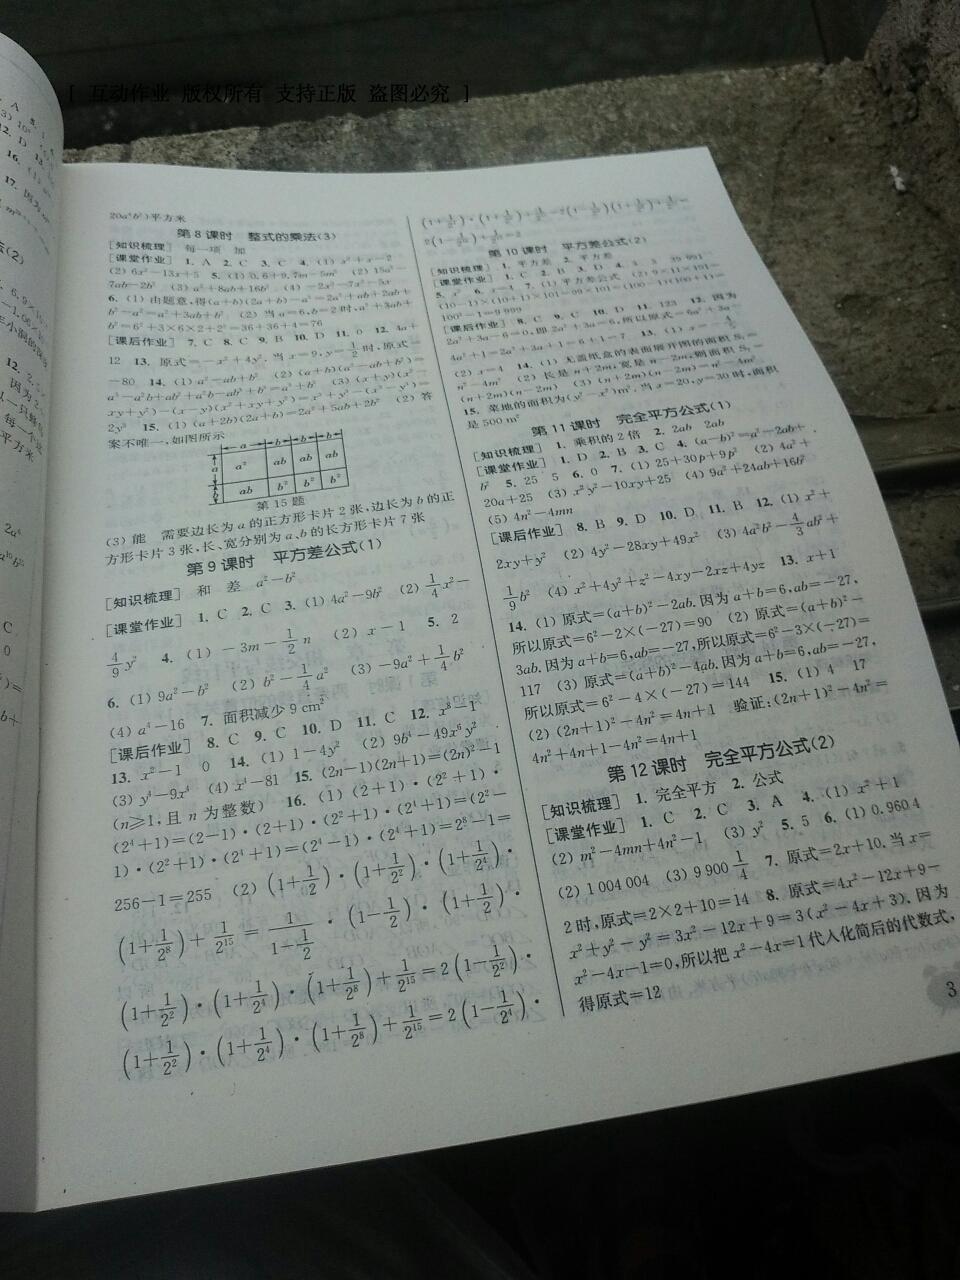 [ 互动作业 版权所有 支持正版 盗图必究 ]
20a⁴b²)平方米
第8课时 整式的乘法(3)
[知识梳理] 每一项 加
[课堂作业] 1. A 2. C 3. C 4. (1) x²+x-2
(2) 6x²-13x+5 5. (1) 0.6+9.7m-5m² (2) 15a²-
7ab-2b² (3) a²+8ab+16b² (4) -2x²-7x²-3x
6. (1) 由题意,得(a+b)(2a+b)-a²=2a²+ab+2ab+
b²-a²=a²+3ab+b² (2) 当a=6,b=2时,a²+3ab+
b²=6²+3×6×2+2²=36+36+4=76
[课后作业] 7. C 8. C 9. B 10. D 11. 0 12. 4a+
12 13. 原式=-x²+4y². 当x=9,y=1/2时,原式=
-80 14. (1) a²-ab+b² (2) (a+b)(a²-ab+b²)=
a³-a²b+ab²+a²b-ab²+b³=a³+b³ (3) (x+y)(x²-
xy+y²)-(x-y)(x²+xy+y²)=x³+y³-(x³-y³)=
2y³ 15. (1) (a+2b)(2a+b)=2a²+5ab+2b² (2) 答
案不唯一,如图所示
a b b b
a a² ab ab ab
b ab b² b² b²
第15题
(3) 能 需要边长为a的正方形卡片2张,边长为b的正
方形卡片3张,长、宽分别为a、b的长方形卡片7张
第9课时 平方差公式(1)
[知识梳理] 和 差 a²-b²
[课堂作业] 1. C 2. C 3. (1) 4a²-9b² (2) 1/4x²-
4/9y² 4. (1) -3m-1/2n (2) x-1 5. 2
6. (1) 9a²-b² (2) b²-1/4a² (3) -9a²+1/4b²
(4) a⁴-16 7. 面积减少9 cm²
[课后作业] 8. C 9. C 10. D 11. C 12. x⁸-1
13. x²-1 0 14. (1) 1-4y² (2) 9b⁴-49x⁶y²
(3) y⁴-9x⁴ (4) x⁴-81 15. (2n-1)(2n+1)=(2n)²-1
(n≥1,且n为整数) 16. (1) (2+1)·(2²+1)·
(2⁴+1)=(2-1)·(2+1)·(2²+1)·(2⁴+1)=(2²-
1)·(2²+1)·(2⁴+1)=(2⁴-1)·(2⁴+1)=2⁸-1=
256-1=255 (2) (1+1/2)·(1+1/2²)·(1+1/2⁴)·
(1+1/2⁸)+1/2¹⁵=1/(1-1/2)·(1-1/2)·(1+1/2)·
(1+1/2²)·(1+1/2⁴)·(1+1/2⁸)+1/2¹⁵=2(1-1/2²)·
(1+1/2²)·(1+1/2⁴)·(1+1/2⁸)+1/2¹⁵=2(1-1/2⁴)·
第10课时 平方差公式(2)
[知识梳理] 1. 平方差 2. 平方差
[课堂作业] 1. C 2. B 3. D 4. 3 3 39 991
100²-1=9 999
[课后作业] 8. C 9. C 10. D 11. 123 12. 因为
2a²+3a-6=0,即2a²+3a=6,所以原式=6a²+3a-
4a²+1=2a²+3a+1=6+1=7
(2) x=4 14. (1) 无盖纸盒的表面展开图的面积S₁=
15. 菜地的面积为(y²-x²)m². 当x=20,y=30时,面积
是500 m²
第11课时 完全平方公式(1)
[知识梳理] 1. 乘积的2倍 2. 2ab 2ab
[课堂作业] 1. D 2. B 3. C 4. (a-b)²=a²-2ab+
b² 5. 25 5 6. 0 7. (1) 25+30p+9p² (2) 4a²+
20a+25 (3) x²y²-10xy+25 (4) 9a²+24ab+16b²
(5) 4n²-4mn
[课后作业] 8. B 9. D 10. D 11. B 12. (1) x²+
2xy+y² (2) 4y²-28xy+49x² (3) 4a²b²-4/3ab²+
1/9b² (4) x²+4y²+z²-4xy-2xz+4yz 13. x+1
14. (1) 原式=(a+b)²-2ab. 因为a+b=6,ab=-27,
所以原式=6²-2×(-27)=90 (2) 原式=(a+b)²-
3ab. 因为a+b=6,ab=-27,所以原式=6²-3×(-27)=
117 (3) 原式=(a+b)²-4ab. 因为a+b=6,ab=-27,
所以原式=6²-4×(-27)=144 15. (1) 4 17
(2) (2n+1)²-4n²=4n+1 验证:(2n+1)²-4n²=
4n²+4n+1-4n²=4n+1
第12课时 完全平方公式(2)
[知识梳理] 1. 完全平方 2. 公式
[课堂作业] 1. C 2. C 3. A 4. (1) x²+1
(2) m²-4mn+4n²-1 (3) y² 5. 5 6. (1) 0.960 4
(2) 1 004 004 (3) 9 900 1/4 7. 原式=2x+10. 当x=
2时,原式=2×2+10=14 8. 原式=4x²-12x+9-
x²+y²-y²=3x²-12x+9=3(x²-4x+3). 因为
x²-4x-1=0,所以把x²-4x=1代入化简后的代数式,
得原式=12
3